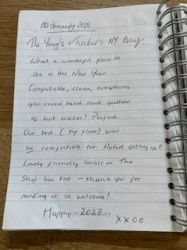 The Young's & Tucker's NY Away!
What a wonderful place to
see in the New Year
Comfortable, clean, everything
you could need and gallons
of hot water! Perfect
Our bed (top floor) was
so comfortable. Hated getting up!!
Lovely friendly locals in The
Ship Inn too - thank you for
making us so welcome!
Happy 2023
xxoo